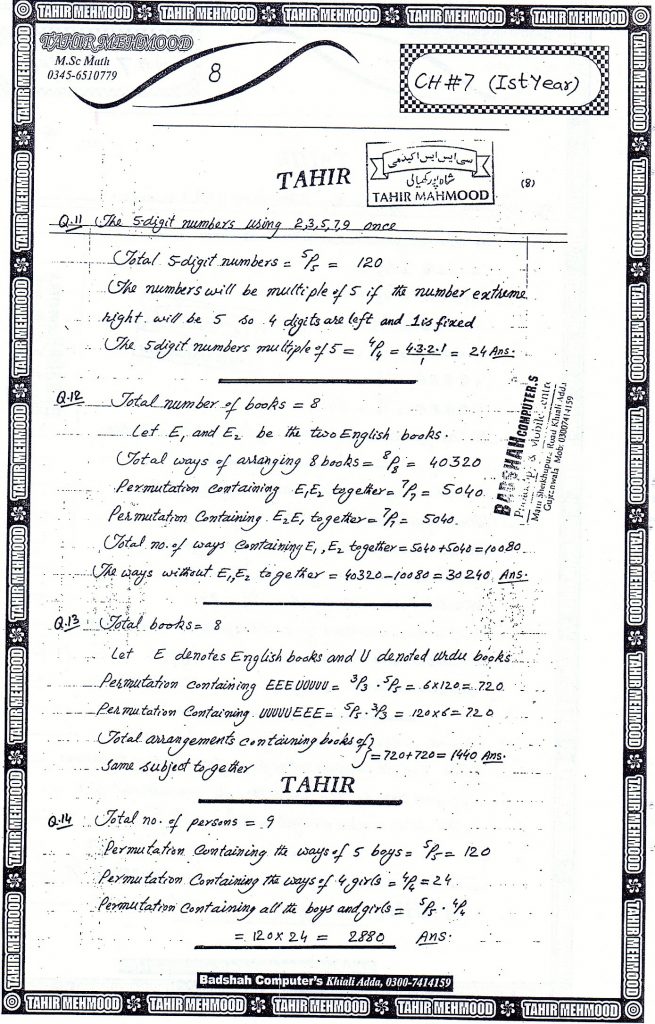 TAHIR MEHMOOD TAHIR MEHMOOD TAHIR MEHMOOD TAHIR MEHMOOD TAHIR MEHMOOD
TAHIR MEHMOOD
M.Sc Math
0345-6510779
8
CH#7 (Ist Year)
TAHIR
سی ایس ایس اکیڈمی
شاہ پور کھیالی
TAHIR MAHMOOD
(8)
Q.11 The 5-digit numbers using 2,3,5,7,9 once
Total 5-digit numbers = ⁵P₅ = 120
The numbers will be multiple of 5 if the number extreme
right will be 5 so 4 digits are left and 1 is fixed
The 5 digit numbers multiple of 5 = ⁴P₄ = 4.3.2.1/1 = 24 Ans.
Q.12 Total number of books = 8
Let E₁ and E₂ be the two English books.
Total ways of arranging 8 books = ⁸P₈ = 40320
Permutation containing E₁E₂ together = ⁷P₇ = 5040
Permutation Containing E₂E₁ together = ⁷P₇ = 5040.
Total no. of ways containing E₁, E₂ together = 5040+5040 = 10080
The ways without E₁, E₂ together = 40320-10080 = 30240 Ans.
BADSHAH COMPUTER,S
Main Sheikhupura Road Khiali Adda
Gujranwala Mob: 03007414159
Q.13 Total books = 8
Let E denotes English books and U denoted urdu books
Permutation containing EEEUUUUU = ³P₃ . ⁵P₅ = 6x120 = 720
Permutation Containing UUUUUEEE = ⁵P₅ . ³P₃ = 120x6 = 720
Total arrangements containing books of
Same subject together } = 720+720 = 1440 Ans.
TAHIR
Q.14 Total no. of persons = 9
Permutation Containing the ways of 5 boys = ⁵P₅ = 120
Permutation Containing the ways of 4 girls = ⁴P₄ = 24
Permutation Containing all the boys and girls = ⁵P₅ . ⁴P₄
= 120x24 = 2880 Ans.
Badshah Computer's Khiali Adda, 0300-7414159
TAHIR MEHMOOD TAHIR MEHMOOD TAHIR MEHMOOD TAHIR MEHMOOD TAHIR MEHMOOD